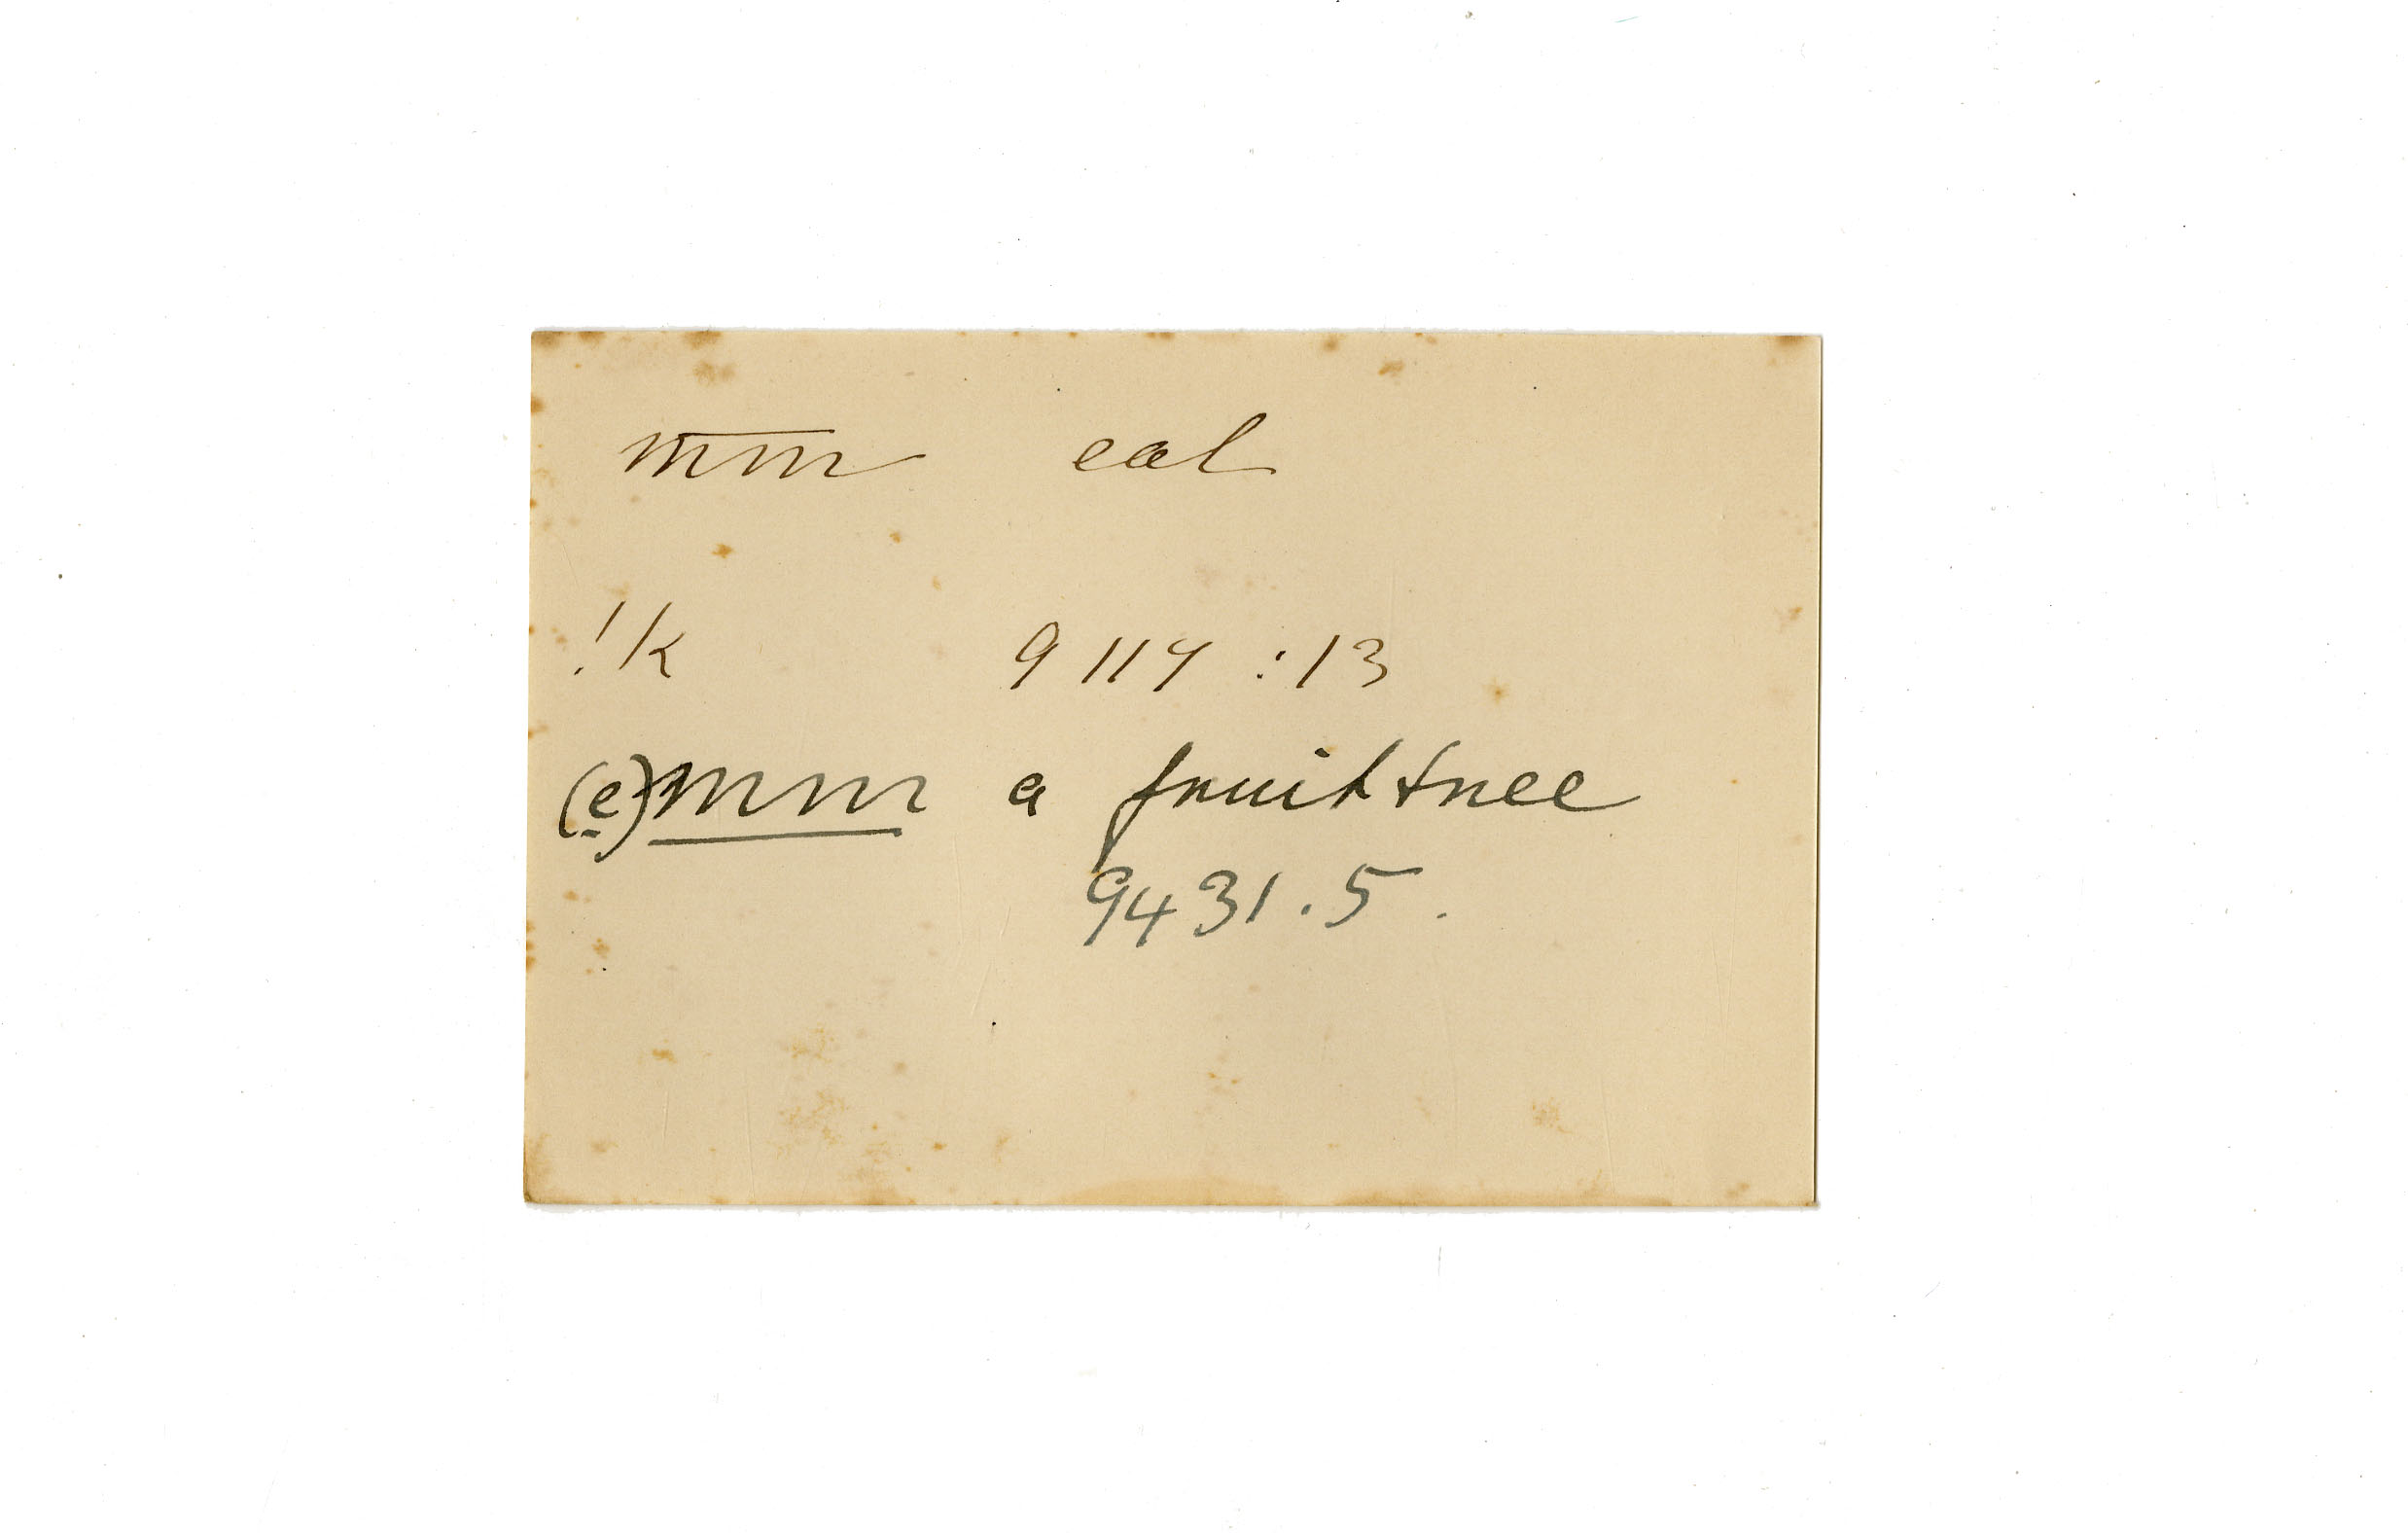 m̅m̅ eat
!k 9117 :13
(e̱)m̲m̲ a fruit tree
9431.5.